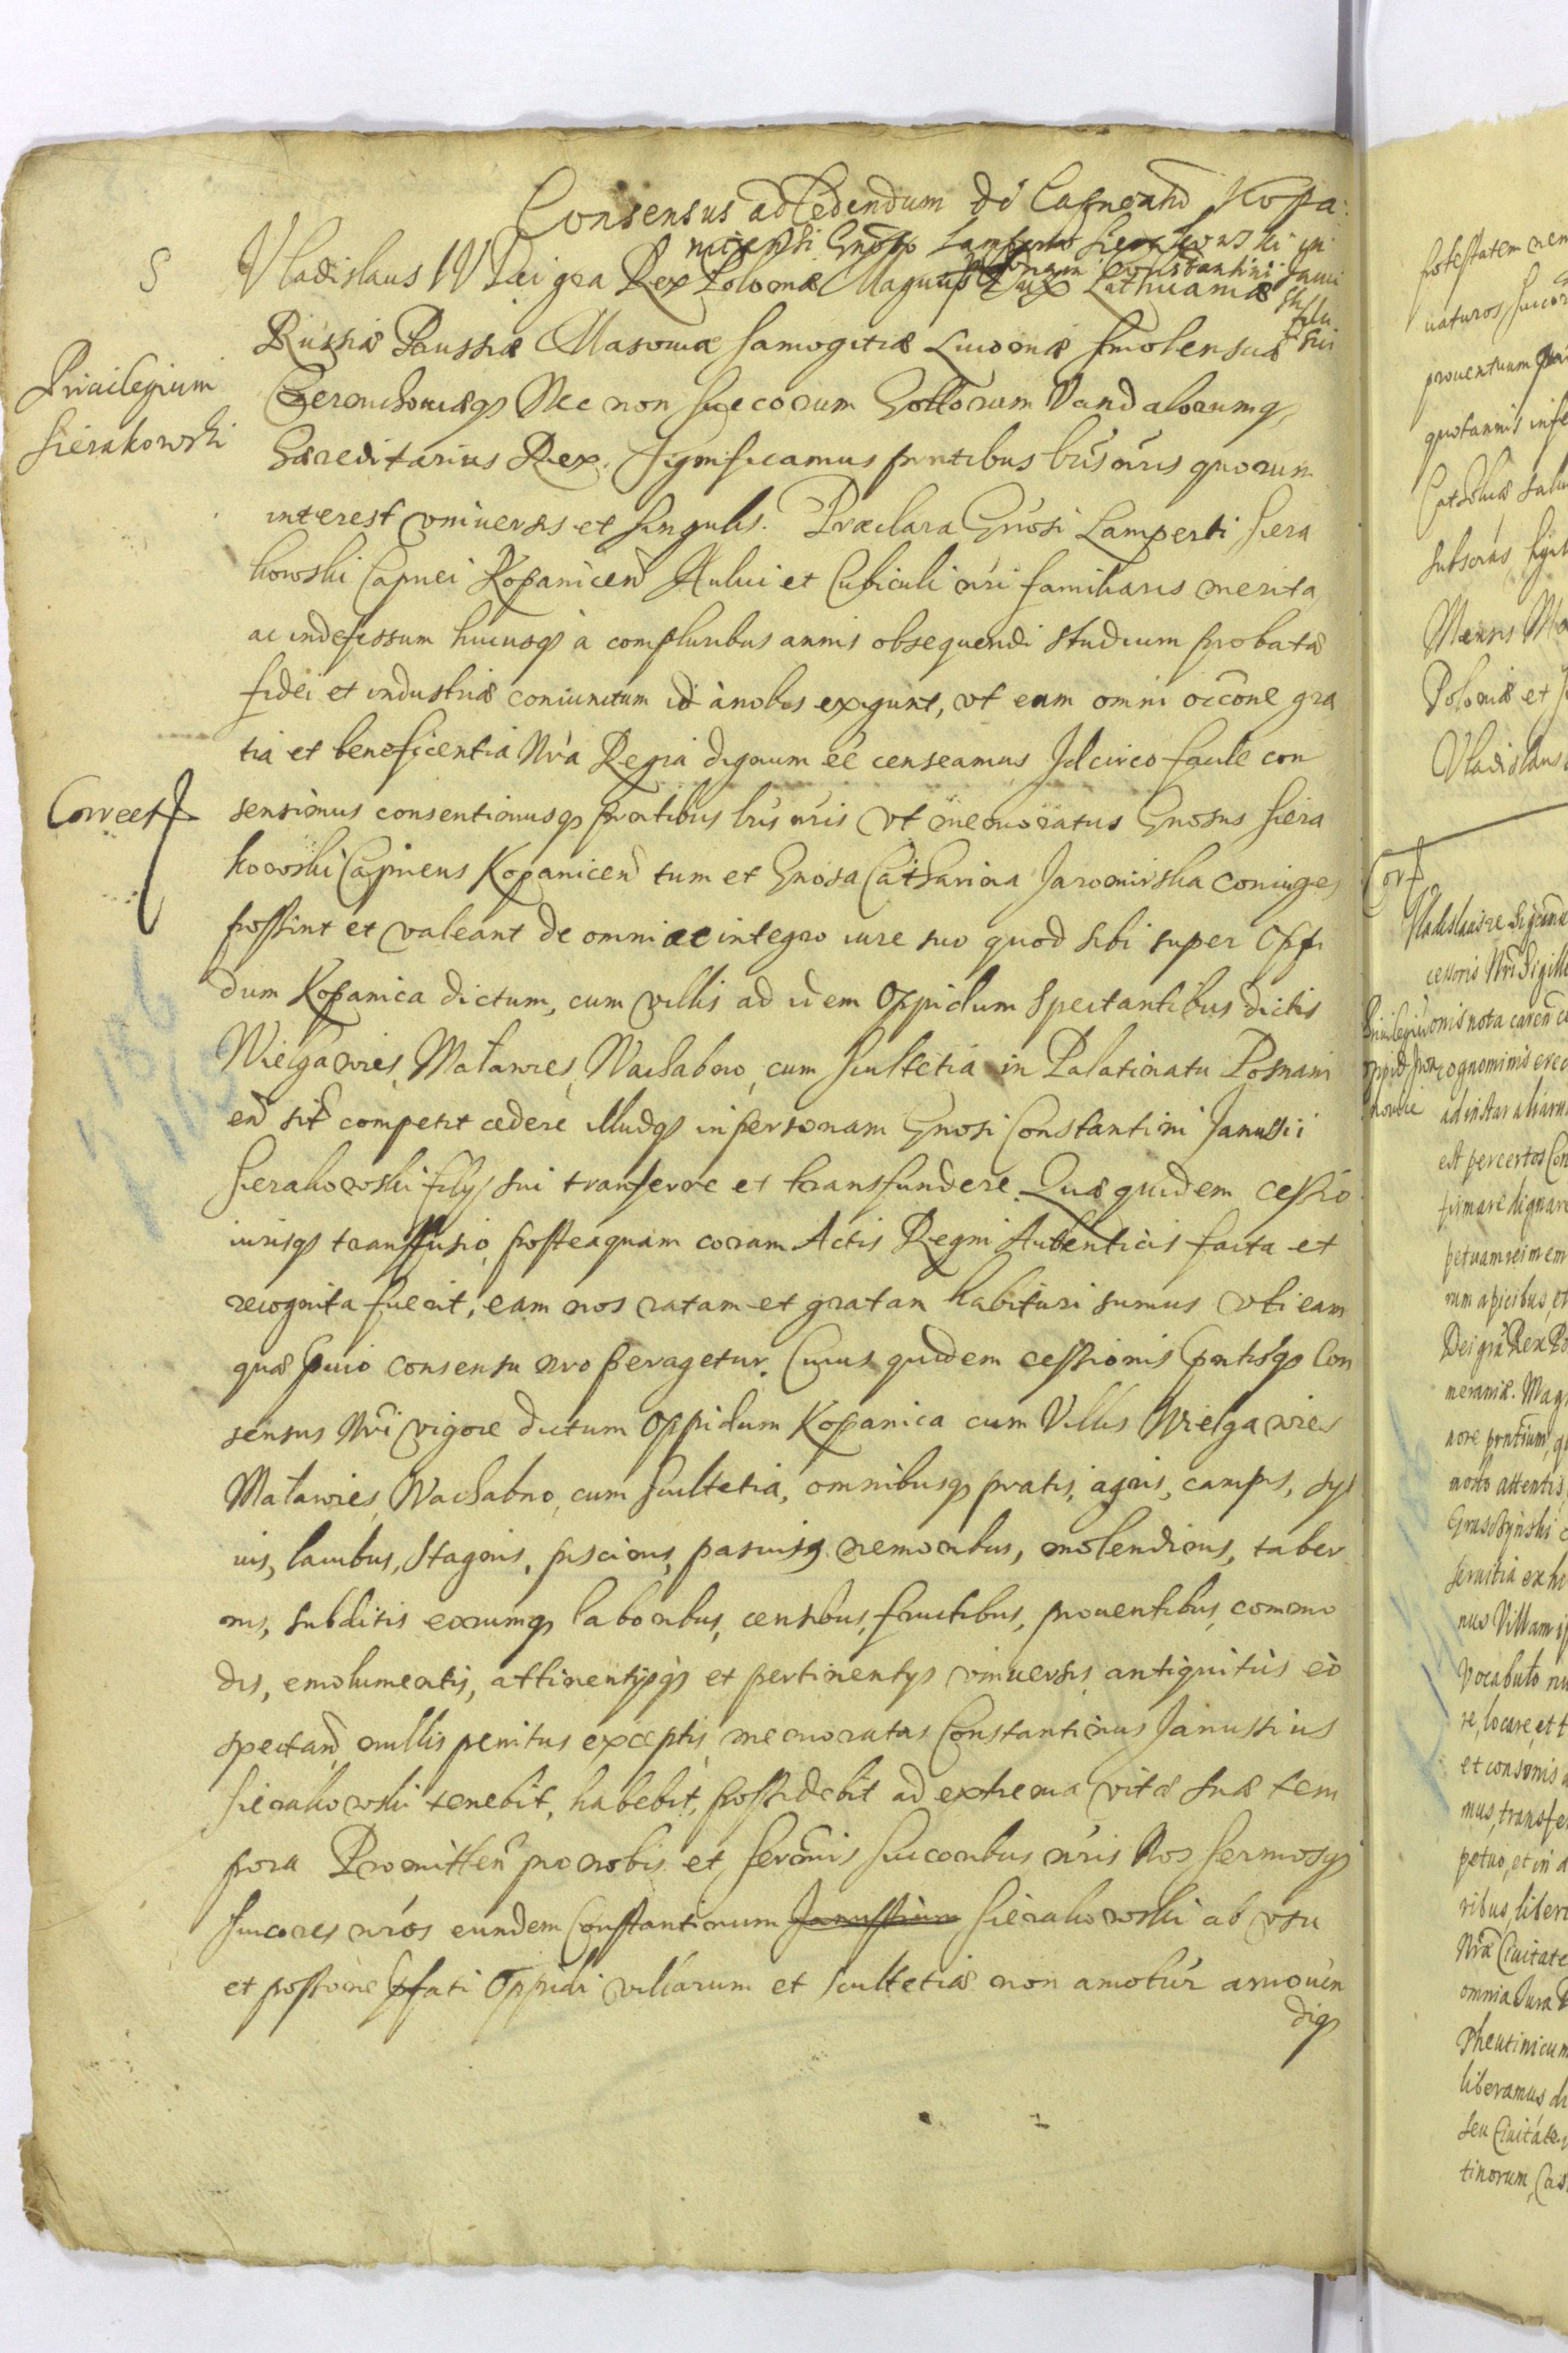 Consensus ad Cedendum de Capneatu Kopa:
nicensi Gnoso Lamperto Sierakowski in
personam Constantini Janu
ssii filii
sui
S
Vladislaus IV Dei gra Rex Poloniæ Magnus Dux Lithuaniæ
Russiæ Prussiæ Masoviæ Samogitiæ Livoniæ Smolensciæ
Privilegium
Sierakowski
Czerniechoviæq Nec non Suecorum Gottorum Vandalorumq
Hæreditarius Rex. Significamus pntibus lris nris quorum
interest vniuersis et singulis. Præclara Gnosi Lamperti Siera
kowski Capnei Kopanicen Aulici et Cubiculi nri familiaris merita
ac indefessum hucusq à compluribus annis obsequendi studium probatæ
fidei et industriæ coniunctum id à nobis exigunt, vt eum omni occone gra
tia et beneficentia Nra Regia dignum eê censeamus Idcirco facile con
Correct
sensimus consentimusq pntibus lris nris Vt memoratus Gnosus Siera
kowski Capneus Kopanicen tum et Gnosa Catharina Jaromirska coniuges
possint et valeant de omni ac integro iure suo quod sibi super Oppi
dum Kopanica dictum, cum villis ad idem Oppidum spectantibus dictis
Wielgawies, Maławies, Wachabno, cum Scultetia in Palatinatu Posnani
en sit competit cedere illudq in personam Gnosi Constantini Janussii
Sierakowski filij sui transferre et transfundere. Quæ quidem cessio
iurisq transfusio, posteaquam coram Actis Regni Authenticis facta et
recognita fuerit, eam nos ratam et gratam habituri sumus vti eam
quæ prævio consensu nro peragetur. Cuius quidem cessionis pntisq Con
sensus Nri vigore dictum Oppidum Kopanica cum Villis Wielgawies
Maławies, Wachabno, cum Scultetia, omnibusq pratis, agris, campis, syl
uis, lacubus, stagnis, piscinis, pascuis nemoribus, molendinis, taber
nis, subditis eorumq laboribus, censibus, fructibus, prouentibus, commo
dis, emolumentis, attinentijsq et pertinentijs vniuersis antiquitùs eò
spectand nullis penitus exceptis memoratus Constantinus Janussius
Sierakowski tenebit, habebit, possidebit ad extrema vitæ suæ tem
pora Promitten pro nobis et Sermis Succoribus nris Nos Sermosq
Succores nros eundem Constantinum Janussium Sierakowski ab vsu
et possone pfati Oppidi villarum et Scultetiæ non amoturos amouen
diq
potestatem
uaturos, Succor
prouentuum
quotannis
Catholicæ
Subscrips Sigil
Mensis
Poloniæ et
Vladislaus
Cor
Vladislaus
cessoris Nri Sigille
onis nota caren
cognominis
ad instar aliarum
est per certos
firmare dignare
petuam rei mem
rum apicibus, et
Dei gra Rex Po
meraniæ. Mag
nore pntium, q
morto attentis
Gruszczynski
seruitia
nus Villam
Vocabulo
re, locare, et
et consimis
mus, transfe
petuo, et in
ribus, liber
Nra Ciuitate
omnia Jura
Theutinicum
liberamus
seu Ciuitate
tinorum, Cas